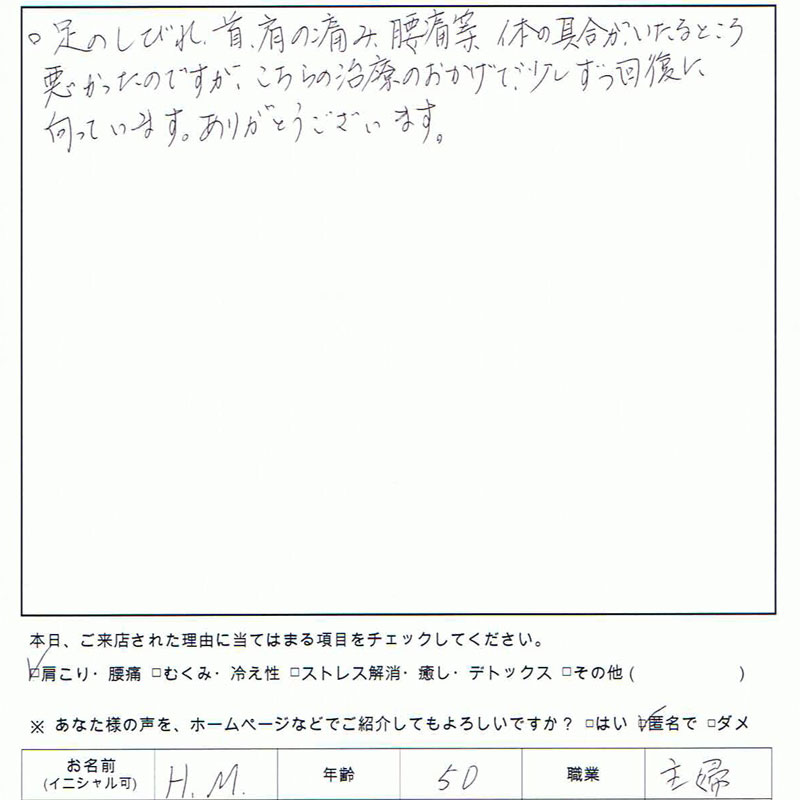 ○足のしびれ、首、肩の痛み、腰痛等、体の具合がいたるところ
悪かったのですが、こちらの治療のおかげで、少しずつ回復に
向っています。ありがとうございます。
本日、ご来店された理由に当てはまる項目をチェックしてください。
☑肩こり・腰痛 □むくみ・冷え性 □ストレス解消・癒し・デトックス □その他( )
※ あなた様の声を、ホームページなどでご紹介してもよろしいですか？ □はい ☑匿名で □ダメ
お名前 (イニシャル可) H.M. 年齢 50 職業 主婦